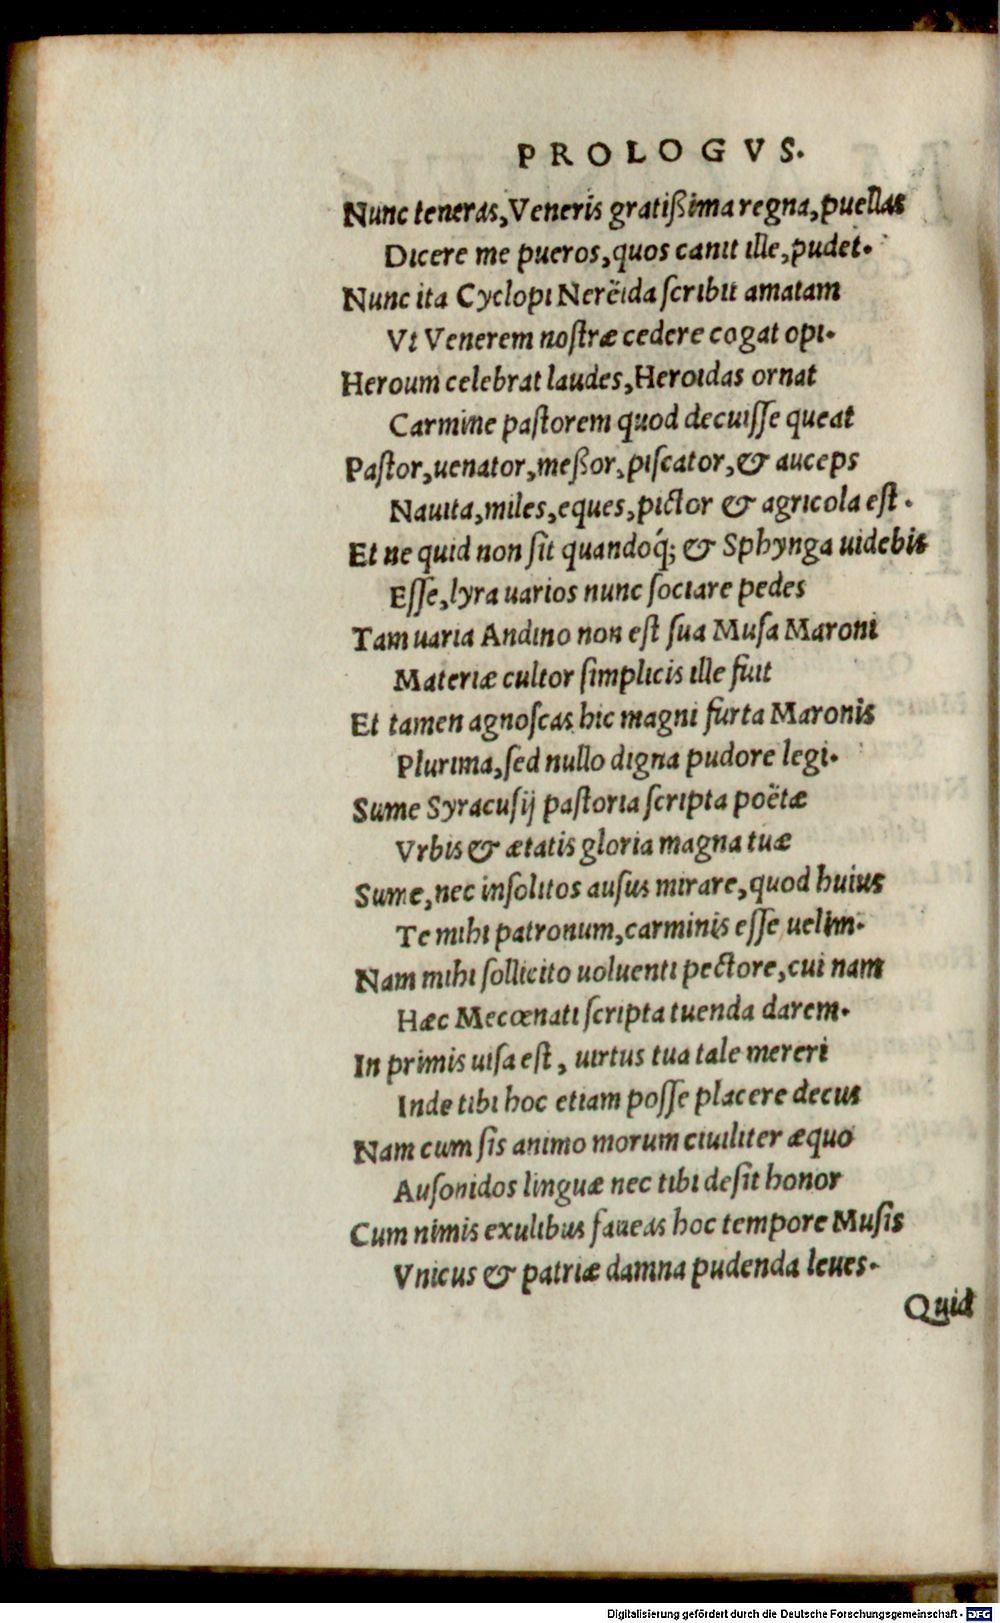 PROLOGVS.
Nunc teneras, Veneris gratißima regna, puellas
Dicere me pueros, quos canit ille, pudet.
Nunc ita Cyclopi Nerëida ſcribit amatam
Vt Venerem noſtræ cedere cogat opi.
Heroum celebrat laudes, Heroidas ornat
Carmine paſtorem quod decuiſſe queat
Paſtor, uenator, meßor, piſcator, & auceps
Nauita, miles, eques, pictor & agricola eſt.
Et ne quid non ſit quandoq́; & Sphynga uidebis
Eſſe, lyra uarios nunc ſociare pedes
Tam uaria Andino non eſt ſua Muſa Maroni
Materiæ cultor ſimplicis ille fuit
Et tamen agnoſcas hic magni furta Maronis
Plurima, ſed nullo digna pudore legi.
Sume Syracuſij paſtoria ſcripta poëtæ
Vrbis & ætatis gloria magna tuæ
Sume, nec inſolitos auſus mirare, quod huius
Te mihi patronum, carminis eſſe uelim.
Nam mihi ſollicito uoluenti pectore, cui nam
Hæc Mecœnati ſcripta tuenda darem.
In primis uiſa eſt, uirtus tua tale mereri
Inde tibi hoc etiam poſſe placere decus
Nam cum ſis animo morum ciuiliter æquo
Auſonidos linguæ nec tibi deſit honor
Cum nimis exulibus faueas hoc tempore Muſis
Vnicus & patriæ damna pudenda leues.
Quid
Digitalisierung gefördert durch die Deutsche Forschungsgemeinschaft - DFG